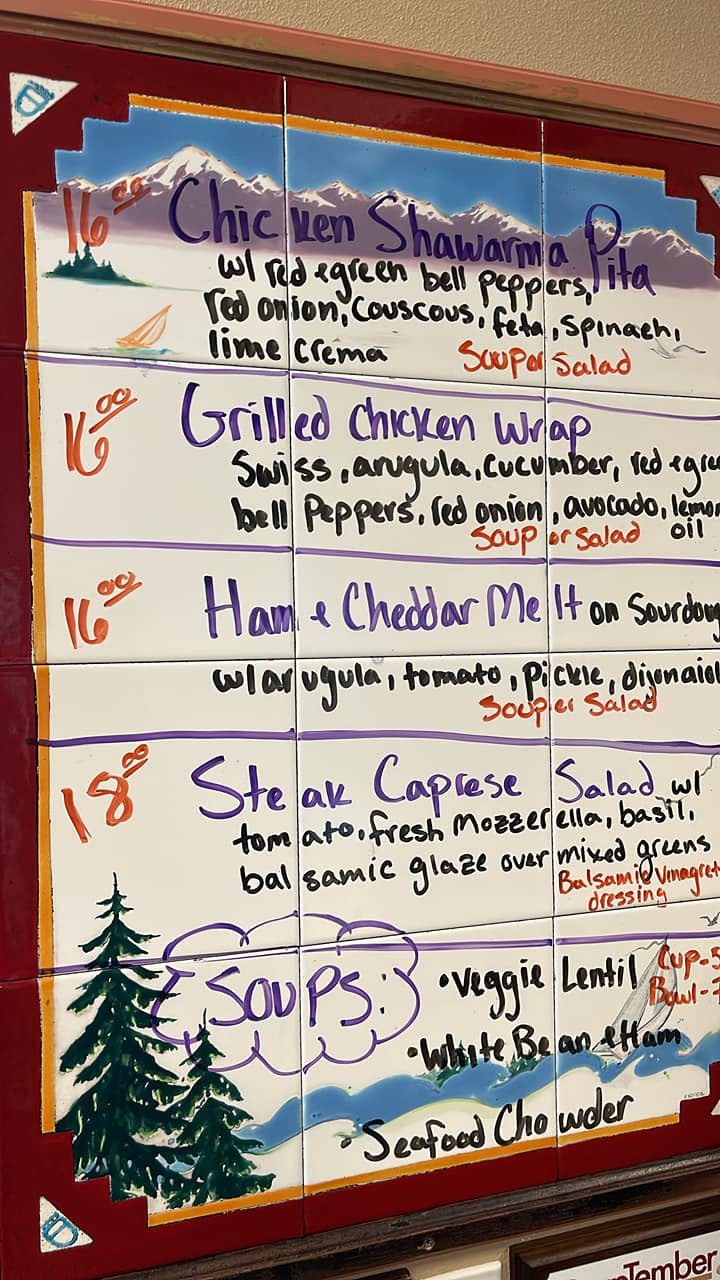 16.00 Chicken Shawarma Pita
w/ red & green bell peppers,
red onion, couscous, feta, spinach,
lime crema Soup or Salad
16.00 Grilled Chicken Wrap
Swiss, arugula, cucumber, red & gree
bell Peppers, red onion, avocado, lemon
Soup or Salad oil
16.00 Ham & Cheddar Melt on Sourdoug
w/ arugula, tomato, pickle, dijonaiol
Soup or Salad
18.00 Steak Caprese Salad w/
tomato, fresh Mozzerella, basil,
balsamic glaze over mixed greens
Balsamic Vinagret
dressing
Soups:
•Veggie Lentil Cup-5
Bowl-7
•White Bean & Ham
•Seafood Chowder
Tember